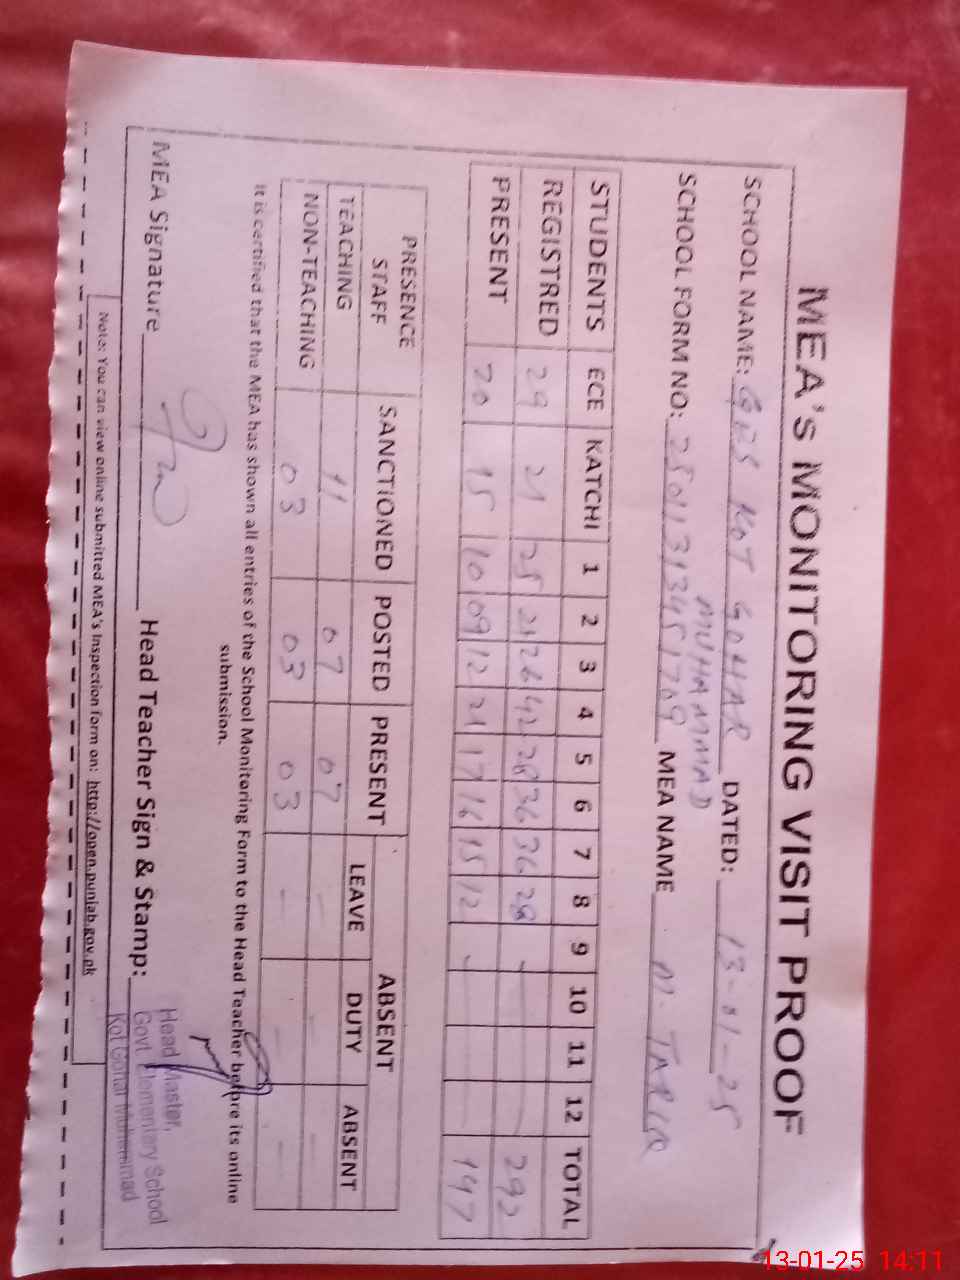 MEA'S MONITORING VISIT PROOF
SCHOOL NAME: GES KOT GOHAR DATED: 13-01-25
MUHAMMAD
SCHOOL FORM NO: MEA NAME M. TARIQ
STUDENTS ECE KATCHI 1 2 3 4 5 6 7 8 9 10 11 12 TOTAL
REGISTRED 29 21 25 21 26 42 28 36 36 28 - 292
PRESENT 20 15 10 09 12 21 17 16 15 12 - 147
PRESENCE STAFF SANCTIONED POSTED PRESENT ABSENT
LEAVE DUTY ABSENT
TEACHING 11 07 07 - - -
NON-TEACHING 03 03 03 - - -
It is certified that the MEA has shown all entries of the School Monitoring Form to the Head Teacher before its online
submission.
MEA Signature Head Teacher Sign & Stamp:
Head Master,
Govt. Elementary School
Kot Gohar Muhammad
Note: You can view online submitted MEA's Inspection form on: http://open.punjab.gov.pk
13-01-25 14:11